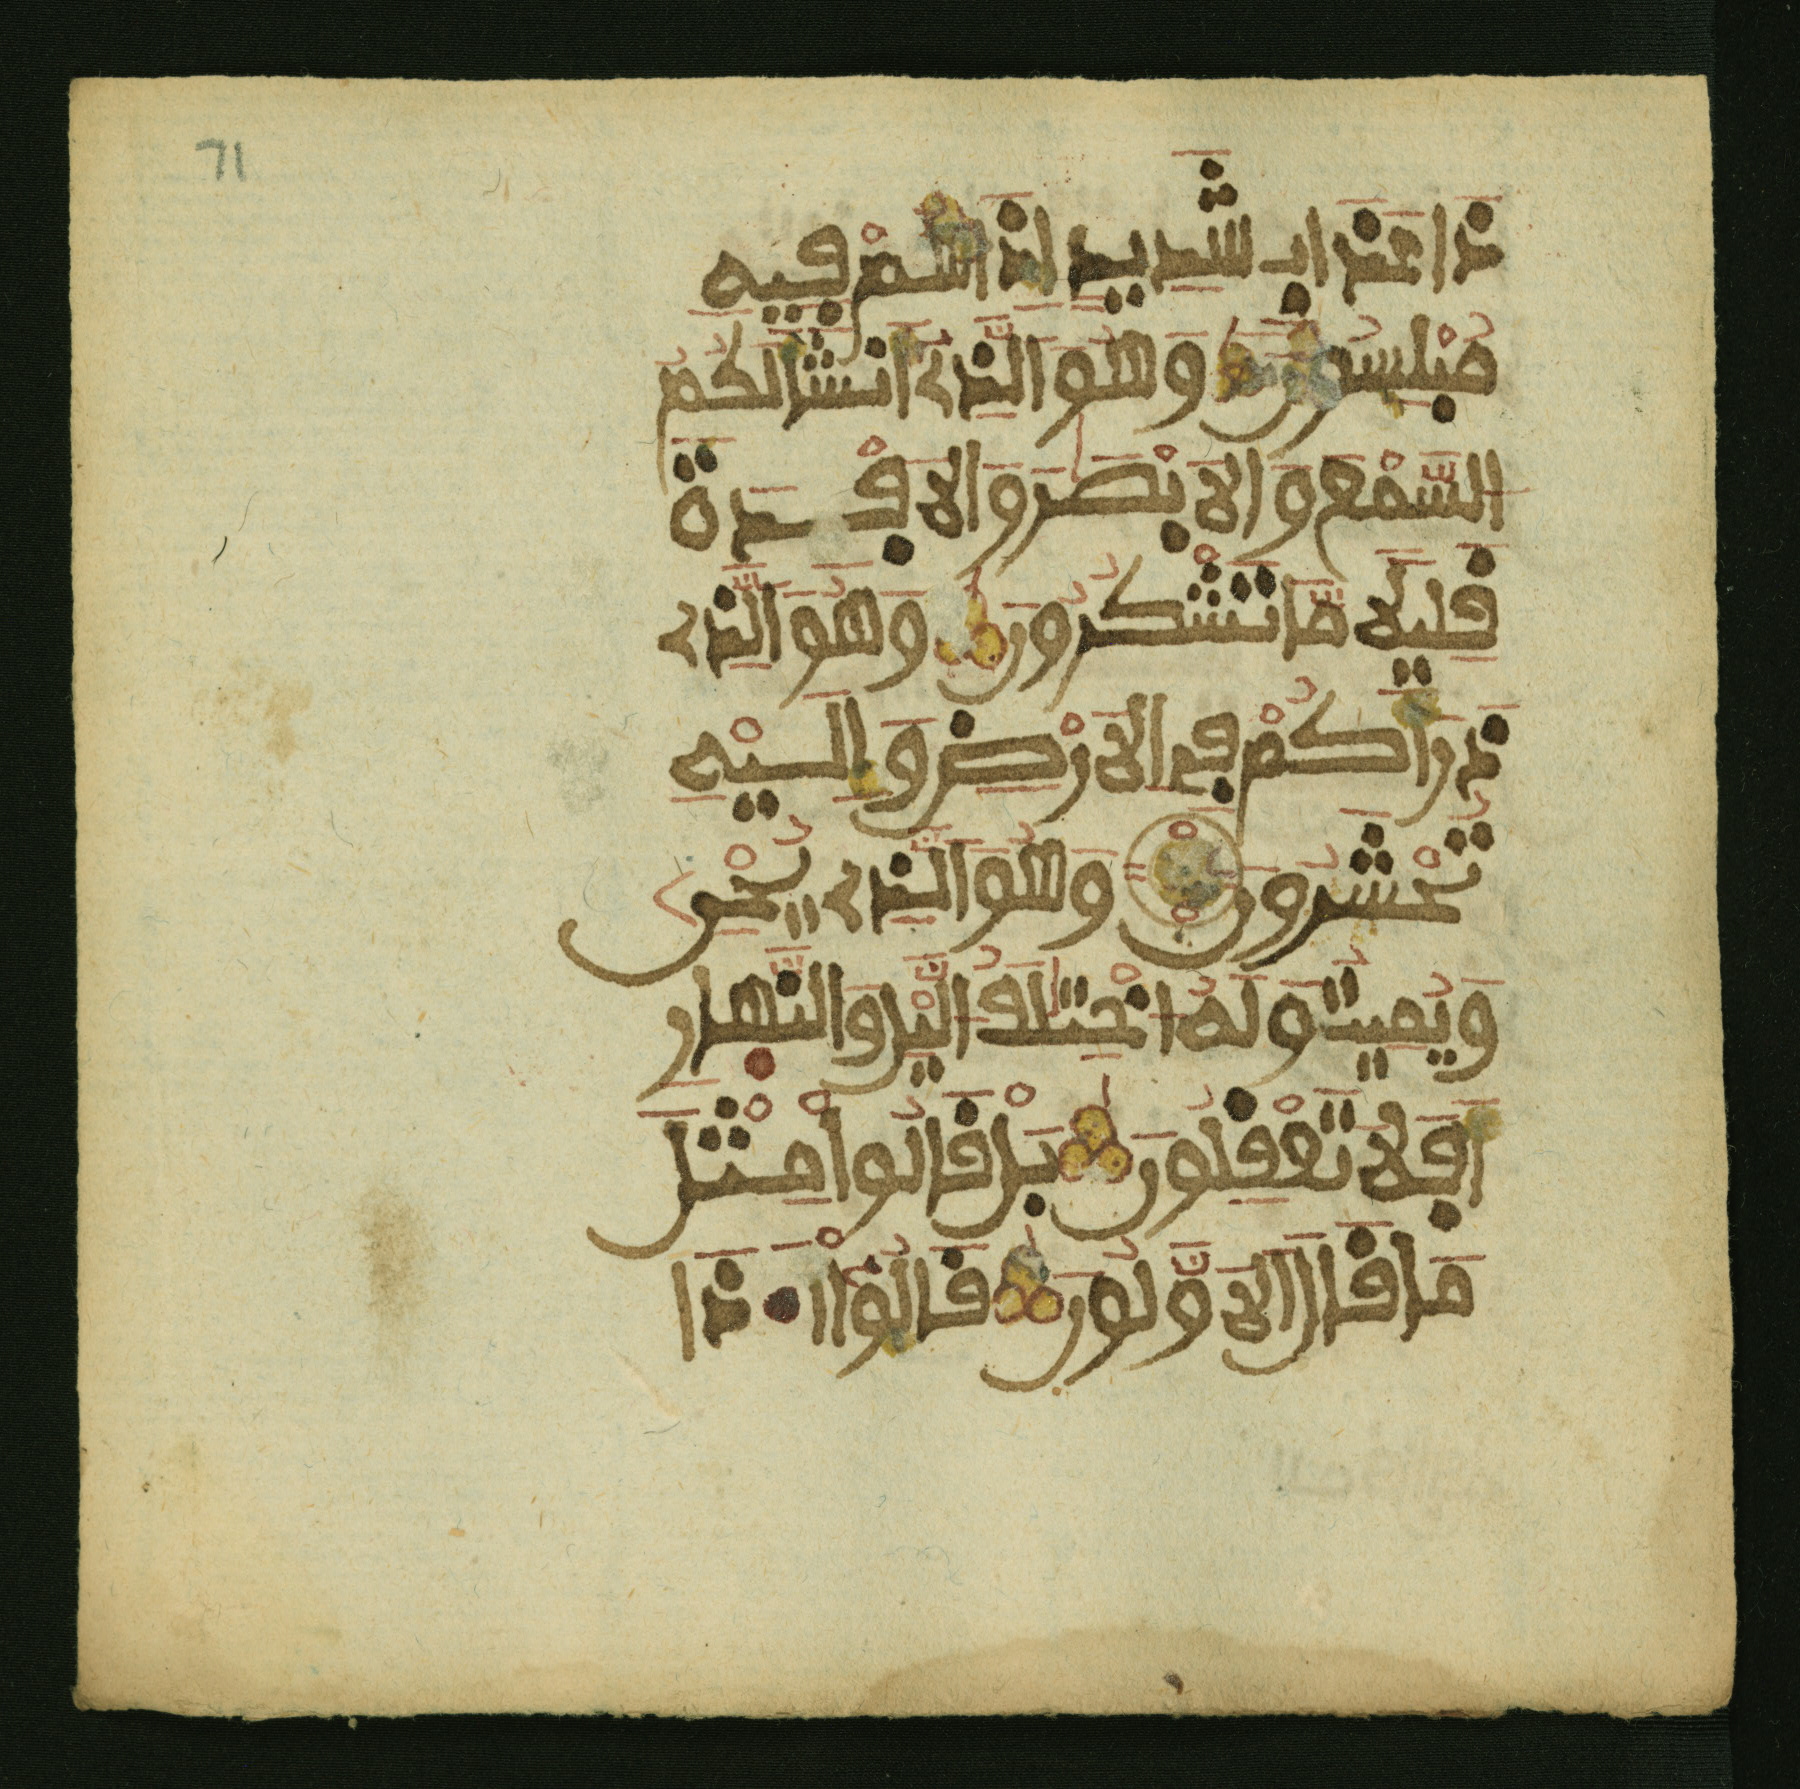 71
ذَا عَذَابٍ شَدِيدٍ اِذَا هُمْ فِيهِ
مُبْلِسُونَ وَهُوَ الَّذِے أَنشَأَ لَكُمُ
السَّمْعَ وَالَابْصَٰرَ وَالَافْـِٕدَةَ
قَلِيلًا مَّا تَشْكُرُونَ وَهُوَ الَّذِے
ذَرَأَكُمْ فِے الَارْضِ وَإِلَيْهِ
تُحْشَرُونَ وَهُوَ الَّذِے يُحْيِ
وَيُمِيتُ وَلَهُ اخْتِلَٰفُ الَّيْلِ وَالنَّهِارِ
أَفَلَا تَعْقِلُونَ بَلْ قَالُواْ مِثْلَ
مَا قَالَ الَاوَّلُونَ قَالُواْ أَ.ذَا